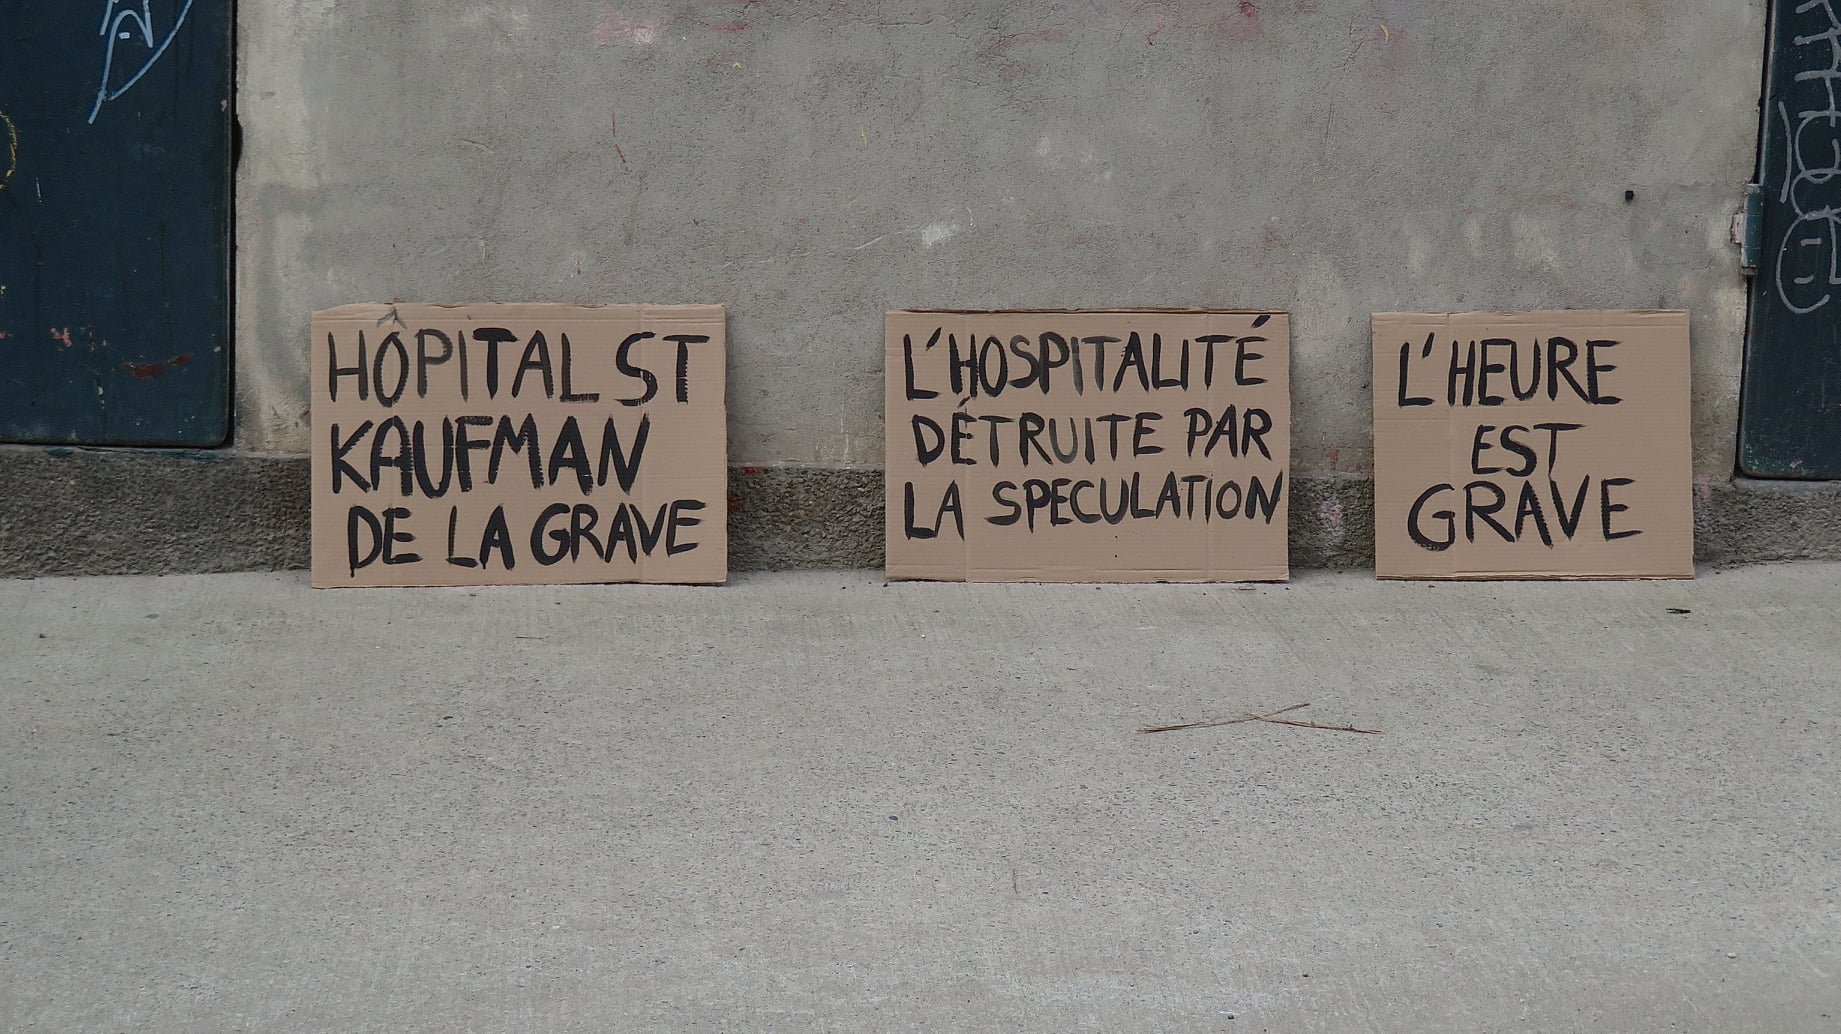 HÔPITAL ST
KAUFMAN
DE LA GRAVE
L'HOSPITALITÉ
DÉTRUITE PAR
LA SPECULATION
L'HEURE
EST
GRAVE